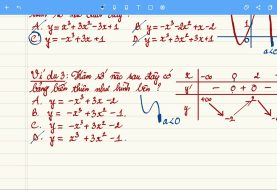 A. y = x³ + 3x² - 3x + 1 B. y = -x³ - 2x² + x - 2
C. y = -x³ + 3x + 1 D. y = x³ + 3x² + 3x + 1
1
a<0
Ví dụ 3: Hàm số nào sau đây có
bảng biến thiên như hình bên?
A. y = -x³ + 3x - 2
B. y = -x³ + 3x² - 1.
C. y = -x³ + 3x² - 2
D. y = x³ + 3x² - 1.
a<0
x -∞ 0 2
y' - 0 + 0 -
y +∞ -2 2